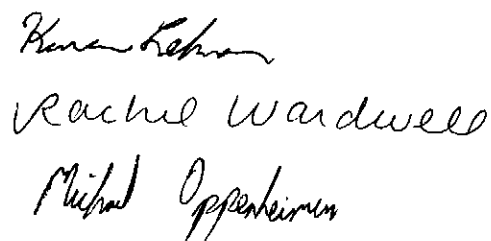 Karen Lehman
Rachel Wardwell
Michael Oppenheimer